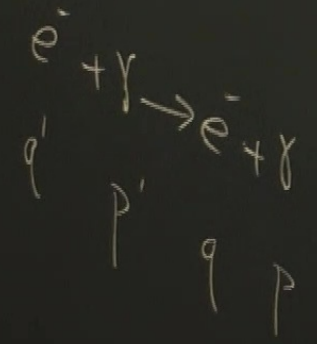 e⁻ + γ → e⁻ + γ
q' p' q p